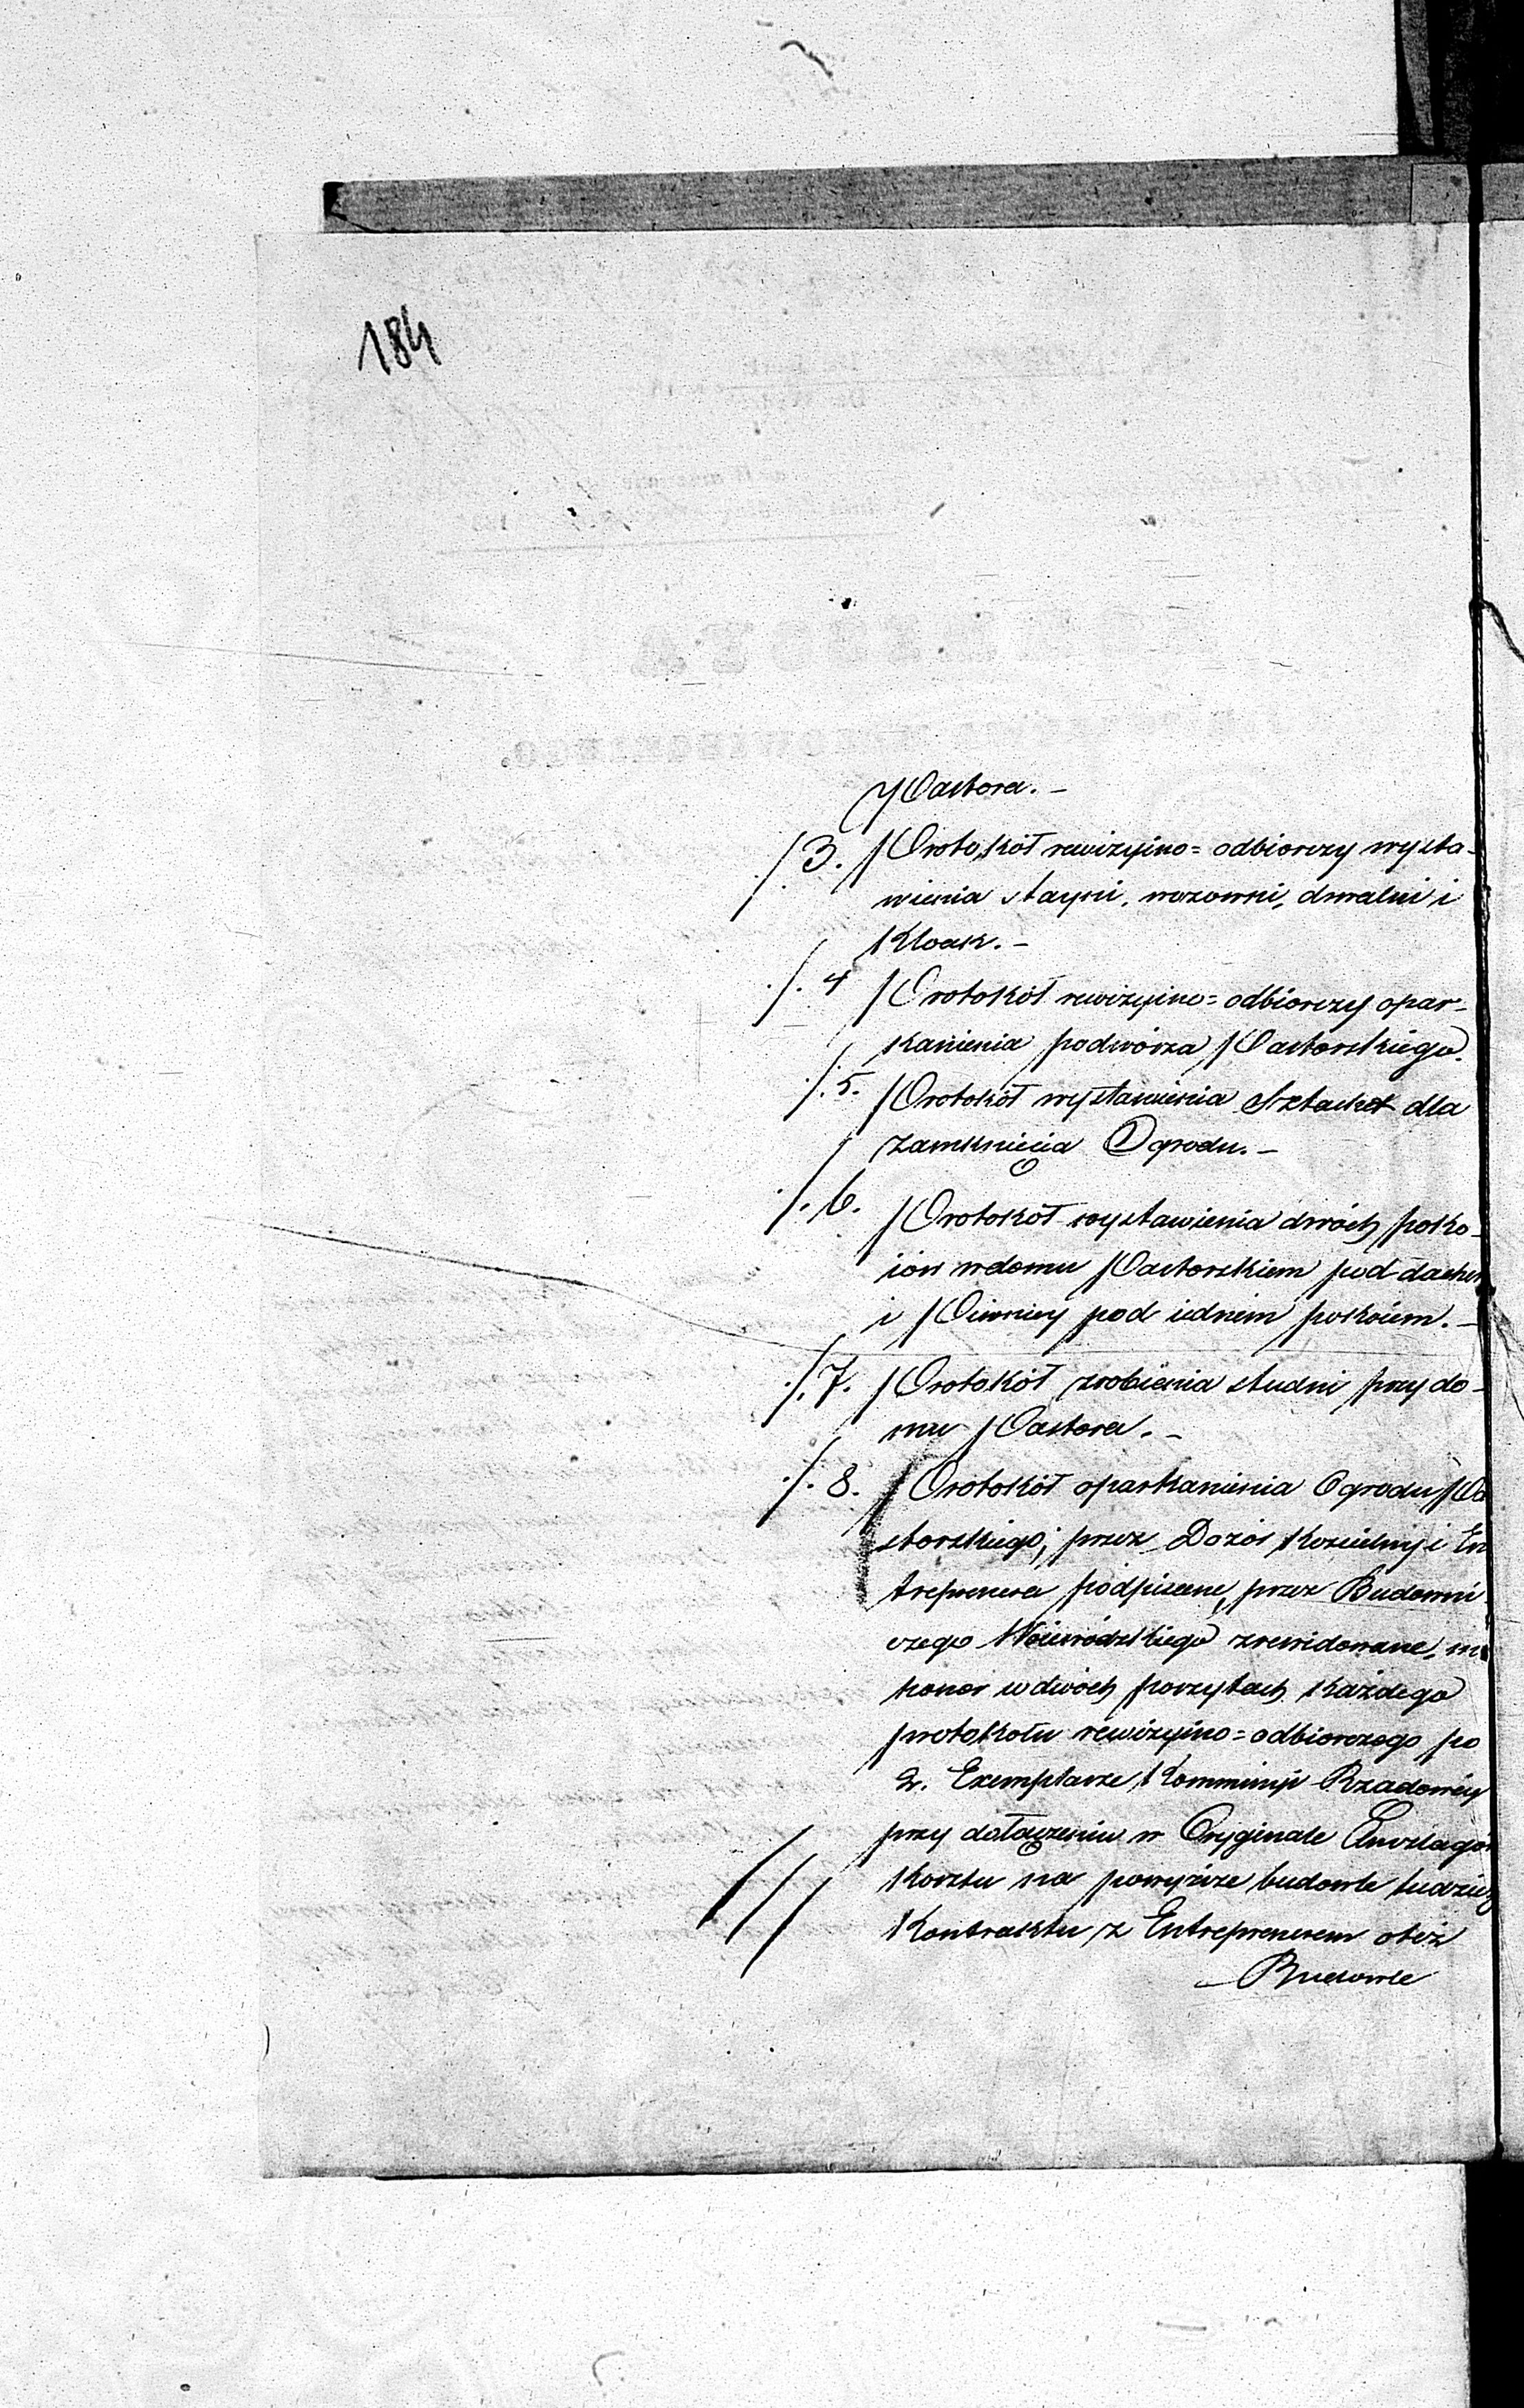 184
Pastora. –
/: 3. Protokół rewizyino= odbiorczy wysta-
wienia stayni, wozowni, drwalni i
Kloak. –
/: 4 Protokół rewizyino= odbiorczy opar-
kanienia podwórza Pastorskiego.
/: 5. Protokół wystawienia Sztachet dla
zamknięcia Ogrodu. –
/: 6. Protokół wystawienia dwóch poko-
iów w domu Pastorskiem pod dachem
i Piwnicy pod iednem pokoiem. –
/: 7. Protokół zrobienia studni przy do-
mu Pastora. –
/: 8. Protokół oparkanienia Ogrodu Pa
storskiego; przez Dozór Kościelny i En
treprenera podpisane, przez Budowni
czego Woiewódzkiego zrewidowane,
w dwóch poszytach każdego
protokołu rewizyino=odbiorczego po
2. Exemplarze, Kommissyi Rządowéy
przy dołączeniu w Oryginale Anszlagów
Kosztu na powyższe budowle tudzież
Kontraktu z Entreprenerem o też
Budowle